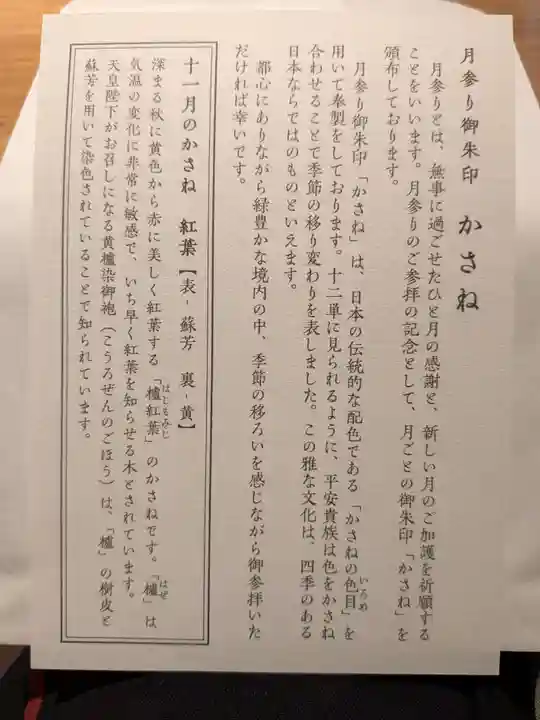 月参り御朱印 かさね
月参りとは、無事に過ごせたひと月の感謝と、新しい月のご加護を祈願する
ことをいいます。月参りのご参拝の記念として、月ごとの御朱印「かさね」を
頒布しております。
月参り御朱印「かさね」は、日本の伝統的な配色である「かさねの色目」を
いろめ
用いて奉製をしております。十二単に見られるように、平安貴族は色をかさね
合わせることで季節の移り変わりを表しました。この雅な文化は、四季のある
日本ならではのものといえます。
都心にありながら緑豊かな境内の中、季節の移ろいを感じながら御参拝いた
だければ幸いです。
十一月のかさね 紅葉【表-蘇芳 裏-黄】
深まる秋に黄色から赤に美しく紅葉する「櫨紅葉」のかさねです。「櫨」は
はじもみじ
はぜ
気温の変化に非常に敏感で、いち早く紅葉を知らせる木とされています。
天皇陛下がお召しになる黄櫨染御袍(こうろぜんのごほう)は、「櫨」の樹皮と
蘇芳を用いて染色されていることで知られています。